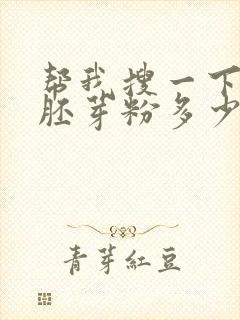 帮我搜一下
胚芽粉多少
青芽紅豆